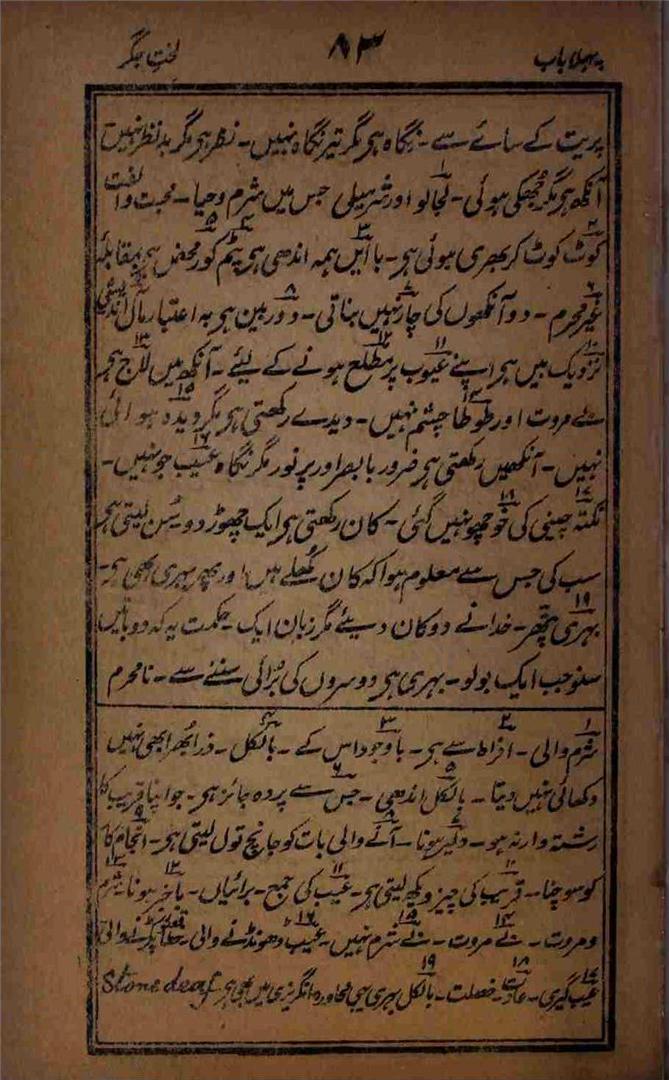 پہلا باب ۸۳ لختِ جگر
پریت کے سائے سے ۔ نگاہ ہی مگر تیر نگاہ نہیں ۔ نظر ہی مگر بد نظر نہیں
آنکھ ہی مگر جھکی ہوئی ۔ لجالو اور شرمیلی جس میں شرم و حیا ۔ محبت و الفت
کوٹ کوٹ کر بھری ہوئی ہی ۔ با ایں ہمہ اندھی ہی پٹم کور محض ہی بمقابلۂ
غیر محرم ۔ دو آنکھوں کی چار نہیں بناتی ۔ دوربین ہی بہ اعتبار مآل اندیشی
نزدیک بیں ہی اپنے عیوب پر مطلع ہونے کے لیئے ۔ آنکھ میں لاج ہی
بے مروت اور طوطا چشم نہیں ۔ دیدے رکھتی ہی مگر دیدہ ہوائی
نہیں ۔ آنکھیں رکھتی ہی ضرور با بصر اور پر نور مگر نگاہ عیب جو نہیں ۔
نکتہ چینی کی خو چھو نہیں گئی ۔ کان رکھتی ہی ایک چھوڑ دو سُن لیتی ہی
سب کی جس سے معلوم ہوا کہ کان کُھلے ہیں اور پھر بہری بھی ہی ۔
بہری پتھر ۔ خدا نے دو کان دیئے مگر زبان ایک ۔ حکمت یہ کہ دو باتیں
سنو جب ایک بولو ۔ بہری ہی دوسروں کی بُرائی سننے سے ۔ نامحرم
۱ شرم والی ۔ ۲ افراط سے ہی ۔ ۳ باوجود اس کے ۔ ۴ بالکل ۔ ذرا بُھر ابھی نہیں
دکھائی نہیں دیتا ۔ ۵ بالکل اندھی ۔ ۶ جس سے پردہ جائز ہی ۔ جو اپنا قریب کا
رشتہ دار نہ ہو ۔ ۷ دلیر ہونا ۔ ۸ آنے والی بات کو جانچ تول لیتی ہی ۔ ۹ انجام کا
کو سوچنا ۔ ۱۰ قریب کی چیز دیکھ لیتی ہی ۔ ۱۱ عیب کی جمع ۔ برائیاں ۔ ۱۲ باخبر ہونا ۔ ۱۳ شرم
و مروت ۔ ۱۴ بے مروت ۔ ۱۵ بے شرم نہیں ۔ ۱۶ عیب ڈھونڈنے والی ۔ پکڑنے والی
۱۷ عیب گیری ۔ ۱۸ عادت ۔ خصلت ۔ ۱۹ بالکل بہری یہی محاورہ انگریزی میں بھی ہی Stone deaf